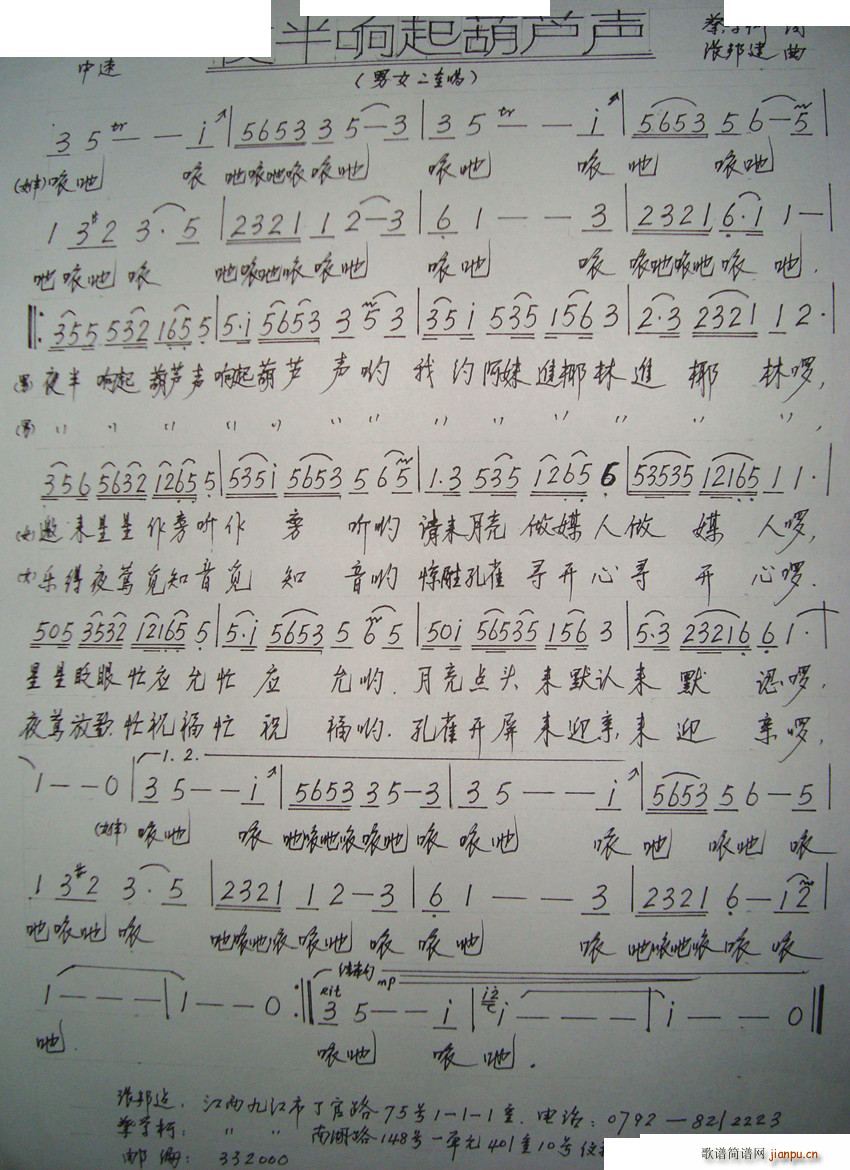 夜半响起葫芦声
蔡 词
中速 张邦建 曲
(男女二重唱)
3 5 tr — — i | 5653 3 5—3 | 3 5 tr — — i | 5653 5 6—5 |
咳吔 咳 吔咳吔咳 咳吔 咳吔 咳 吔 咳吔
1 3 #2 3· 5 | 2321 1 2—3 | 6 1 — — 3 | 2321 6·1 1— |
吔咳吔 咳 吔咳吔咳 咳吔 咳吔 咳 咳吔咳吔 咳 吔.
355 532 165 5 | 5·i 5653 3 5 3 | 35i 535 156 3 | 2·3 2321 1 2· |
(男) 夜半 响起 葫芦声 响起葫 芦 声哟 我约阿妹進椰林進 椰 林啰,
(男) 〃 〃 〃 〃 〃 〃 〃 〃 〃 〃 〃 ,
356 5632 1265 5 | 535i 5653 5 6 5 | 1·3 535 1265 6 | 53535 12165 1 1· |
(女) 邀来星星作旁听作 旁 听哟 請来月亮 做媒人做 媒 人啰,
(女) 乐得夜莺觅知音觅 知 音哟 惊醒孔雀 寻开心寻 开 心啰.
505 3532 12165 5 | 5·i 5653 5 6 5 | 50i 56535 156 3 | 5·3 23216 6 1· |
星星眨眼忙应允忙 应 允哟. 月亮点头 来默认来 默 认啰,
夜莺放歌忙祝福忙 祝 福哟. 孔雀开屏 来迎亲来 迎 亲啰,
1.2.
1 — — 0 | 3 5 — — i | 5653 3 5—3 | 3 5 — — i | 5653 5 6—5 |
咳吔 咳 吔咳吔咳咳吔 咳 咳吔 咳 吔 咳吔 咳
1 3 #2 3· 5 | 2321 1 2—3 | 6 1 — — 3 | 2321 6—12 |
吔咳吔 咳 吔咳吔咳咳吔 咳 咳吔 咳 吔咳吔咳 咳 咳
结束句 rit mp
1 — — — | 1 — — 0 :‖ 3 5 — — i | i — — — | i — — 0 ‖
吔. 咳吔 咳吔.
张邦建. 江西九江市丁官路75号1-1-1室. 电话: 0792—8212223
蔡 柯: 〃 〃 南湖路148号一单元401室10号
邮编: 332000
歌谱简谱网 jianpu.cn